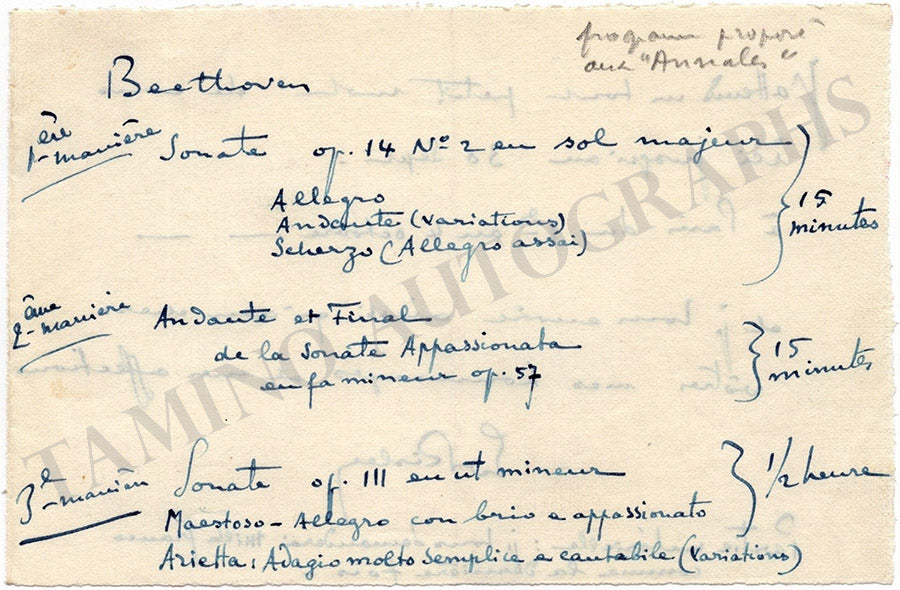 programme proposé
aux "Annales"
Beethoven
1ère manière
Sonate op. 14 No 2 en sol majeur
Allegro
Andante (variations)
Scherzo (Allegro assai)
15 minutes
2ème manière
Andante et Final
de la Sonate Appassionata
en fa mineur op. 57
15 minutes
3e manière
Sonate op. 111 en ut mineur
Maestoso - Allegro con brio e appassionato
Arietta : Adagio molto semplice e cantabile (variations)
1/2 heure
TAMINO AUTOGRAPHS